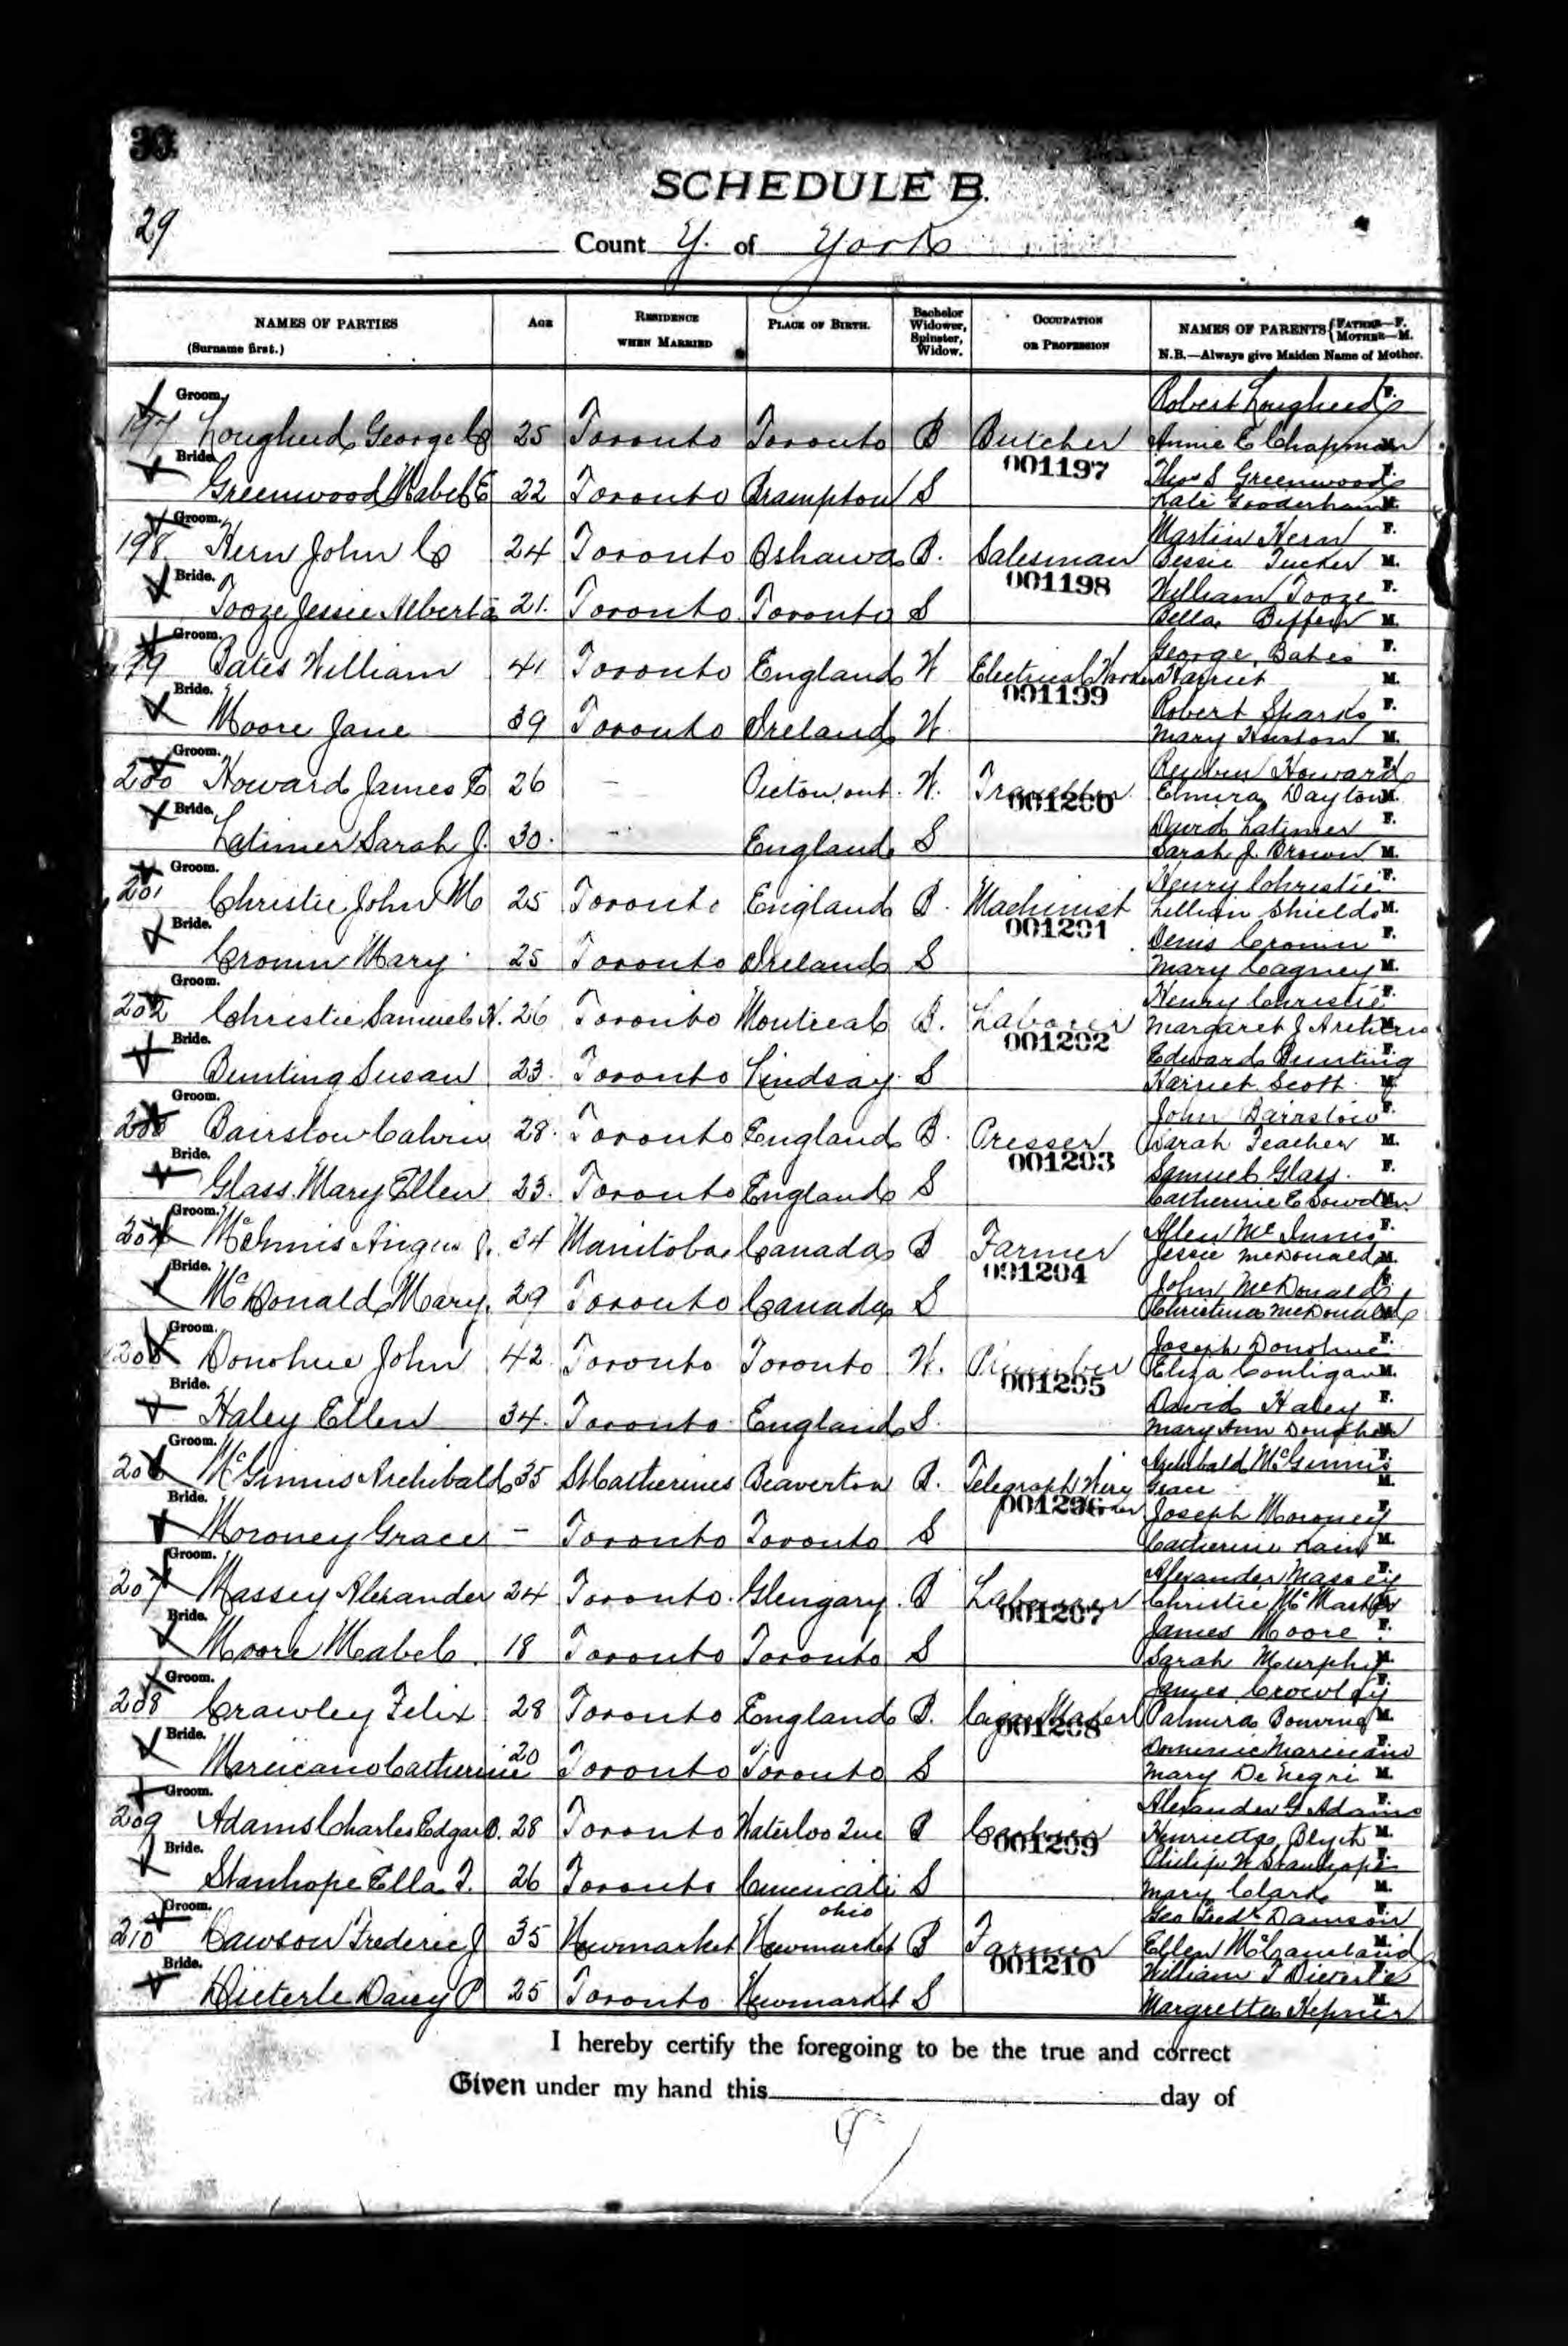 30
SCHEDULE B.
29
Count y. of York
NAMES OF PARTIES
(Surname first.)
AGE
RESIDENCE
WHEN MARRIED
PLACE OF BIRTH.
Bachelor
Widower,
Spinster,
Widow.
OCCUPATION
OR PROFESSION
NAMES OF PARENTS {FATHER—F. MOTHER—M.
N.B.—Always give Maiden Name of Mother.
Groom. Robert Lougheed F.
197 Lougheed George C 25 Toronto Toronto B Butcher Annie E Chapman M.
Bride. 001197 Thos S Greenwood F.
Greenwood Mabel E 22 Toronto Brampton S Kate Gooderham M.
Groom. Martin Kern F.
198 Kern John C 24 Toronto Oshawa B. Salesman Bessie Tucker M.
Bride. 001198 William Tooze F.
Tooze Jessie Alberta 21. Toronto Toronto S Bella M.
Groom. George Bates F.
199 Bates William 41 Toronto England W Electrical Worker Harriet M.
Bride. 001199 Robert Sparks F.
Moore Jane 39 Toronto Ireland W. Mary M.
Groom. Reuben Howard F.
200 Howard James E 26 – Picton, ont. W. Elmira Dayton M.
Bride. 001200 David Latimer F.
Latimer Sarah J. 30. – England S Sarah J. Brown M.
Groom. Henry Christie F.
201 Christie John M 25 Toronto England B. Machinist Lillian Shields M.
Bride. 001201 Denis Cronin F.
Cronin Mary 25 Toronto Ireland S Mary Cagney M.
Groom. Henry Christie F.
202 Christie Samuel H. 26 Toronto Montreal B. Laborer Margaret J M.
Bride. 001202 Edward Bunting F.
Bunting Susan 23. Toronto Lindsay. S Harriet Scott M.
Groom. John Bairstow F.
203 Bairstow Calvin 28. Toronto England B. Presser Sarah Teacher M.
Bride. 001203 Samuel Glass. F.
Glass Mary Ellen 23. Toronto England S Catherine E Sowden M.
Groom. Allen McInnis F.
204 McInnis Angus J. 34 Manitoba Canada B Farmer Jessie McDonald M.
Bride. 001204 John McDonald F.
McDonald Mary. 29 Toronto Canada S Christina McDonald M.
Groom. Joseph Donohue F.
205 Donohue John 42 Toronto Toronto W. Plumber Eliza M.
Bride. 001205 David Haley F.
Haley Ellen 34. Toronto England S. Mary Ann M.
Groom. Archibald McGinnis F.
206 McGinnis Archibald 35 St Catherines Beaverton B. Telegraph Grace M.
Bride. 001206 Joseph Moroney F.
Moroney Grace – Toronto Toronto S Catherine M.
Groom. Alexander Massey F.
207 Massey Alexander 24 Toronto. Glengary. B Labourer Christie McMaster M.
Bride. 001207 James Moore F.
Moore Mabel. 18 Toronto Toronto S Sarah Murphy M.
Groom. James Crowley F.
208 Crawley Felix 28 Toronto England B. Cigar Maker Palmira M.
Bride. 001208 F.
Catherine 20 Toronto Toronto S Mary De Negri M.
Groom. Alexander G Adams F.
209 Adams Charles Edgar O. 28 Toronto Waterloo Que B Henrietta Blyth M.
Bride. 001209 Philip W Stanhope F.
Stanhope Ella F. 26 Toronto Cincinnati S Mary Clark M.
ohio
Groom. Geo Fredk Dawson F.
210 Dawson Frederic J 35 Newmarket Newmarket B Farmer Ellen McCausland M.
Bride. 001210 William F Dieterle F.
Dieterle Daisy P 25 Toronto Newmarket S Margretta Hepner M.
I hereby certify the foregoing to be the true and correct
Given under my hand this day of